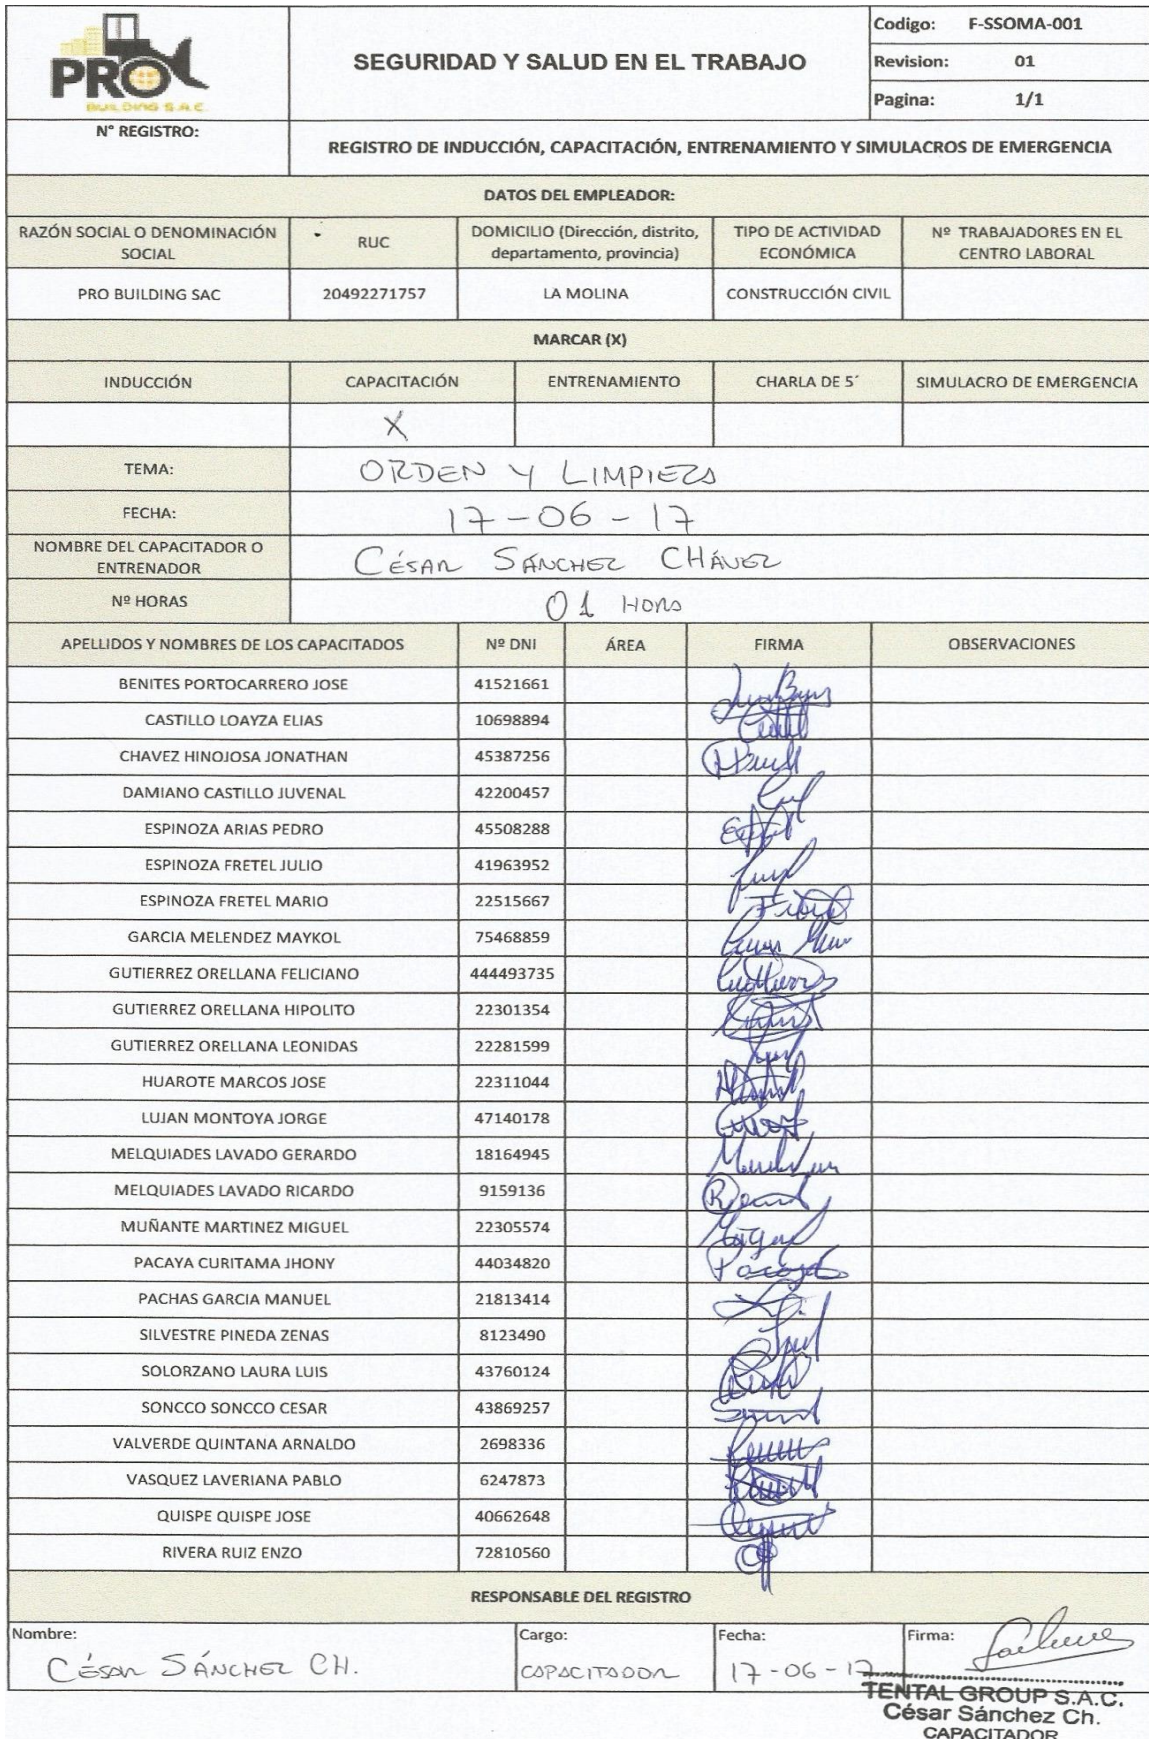 PRO
BUILDING S.A.C.
SEGURIDAD Y SALUD EN EL TRABAJO
Codigo: F-SSOMA-001
Revision: 01
Pagina: 1/1
N° REGISTRO:
REGISTRO DE INDUCCIÓN, CAPACITACIÓN, ENTRENAMIENTO Y SIMULACROS DE EMERGENCIA
DATOS DEL EMPLEADOR:
RAZÓN SOCIAL O DENOMINACIÓN SOCIAL RUC DOMICILIO (Dirección, distrito, departamento, provincia) TIPO DE ACTIVIDAD ECONÓMICA Nº TRABAJADORES EN EL CENTRO LABORAL
PRO BUILDING SAC 20492271757 LA MOLINA CONSTRUCCIÓN CIVIL
MARCAR (X)
INDUCCIÓN CAPACITACIÓN ENTRENAMIENTO CHARLA DE 5´ SIMULACRO DE EMERGENCIA
X
TEMA: ORDEN Y LIMPIEZA
FECHA: 17-06-17
NOMBRE DEL CAPACITADOR O ENTRENADOR CÉSAR SÁNCHEZ CHÁVEZ
Nº HORAS 01 HORA
APELLIDOS Y NOMBRES DE LOS CAPACITADOS Nº DNI ÁREA FIRMA OBSERVACIONES
BENITES PORTOCARRERO JOSE 41521661
CASTILLO LOAYZA ELIAS 10698894
CHAVEZ HINOJOSA JONATHAN 45387256
DAMIANO CASTILLO JUVENAL 42200457
ESPINOZA ARIAS PEDRO 45508288
ESPINOZA FRETEL JULIO 41963952
ESPINOZA FRETEL MARIO 22515667
GARCIA MELENDEZ MAYKOL 75468859
GUTIERREZ ORELLANA FELICIANO 444493735
GUTIERREZ ORELLANA HIPOLITO 22301354
GUTIERREZ ORELLANA LEONIDAS 22281599
HUAROTE MARCOS JOSE 22311044
LUJAN MONTOYA JORGE 47140178
MELQUIADES LAVADO GERARDO 18164945
MELQUIADES LAVADO RICARDO 9159136
MUÑANTE MARTINEZ MIGUEL 22305574
PACAYA CURITAMA JHONY 44034820
PACHAS GARCIA MANUEL 21813414
SILVESTRE PINEDA ZENAS 8123490
SOLORZANO LAURA LUIS 43760124
SONCCO SONCCO CESAR 43869257
VALVERDE QUINTANA ARNALDO 2698336
VASQUEZ LAVERIANA PABLO 6247873
QUISPE QUISPE JOSE 40662648
RIVERA RUIZ ENZO 72810560
RESPONSABLE DEL REGISTRO
Nombre: CÉSAR SÁNCHEZ CH. Cargo: CAPACITADOR Fecha: 17-06-17 Firma:
TENTAL GROUP S.A.C.
César Sánchez Ch.
CAPACITADOR